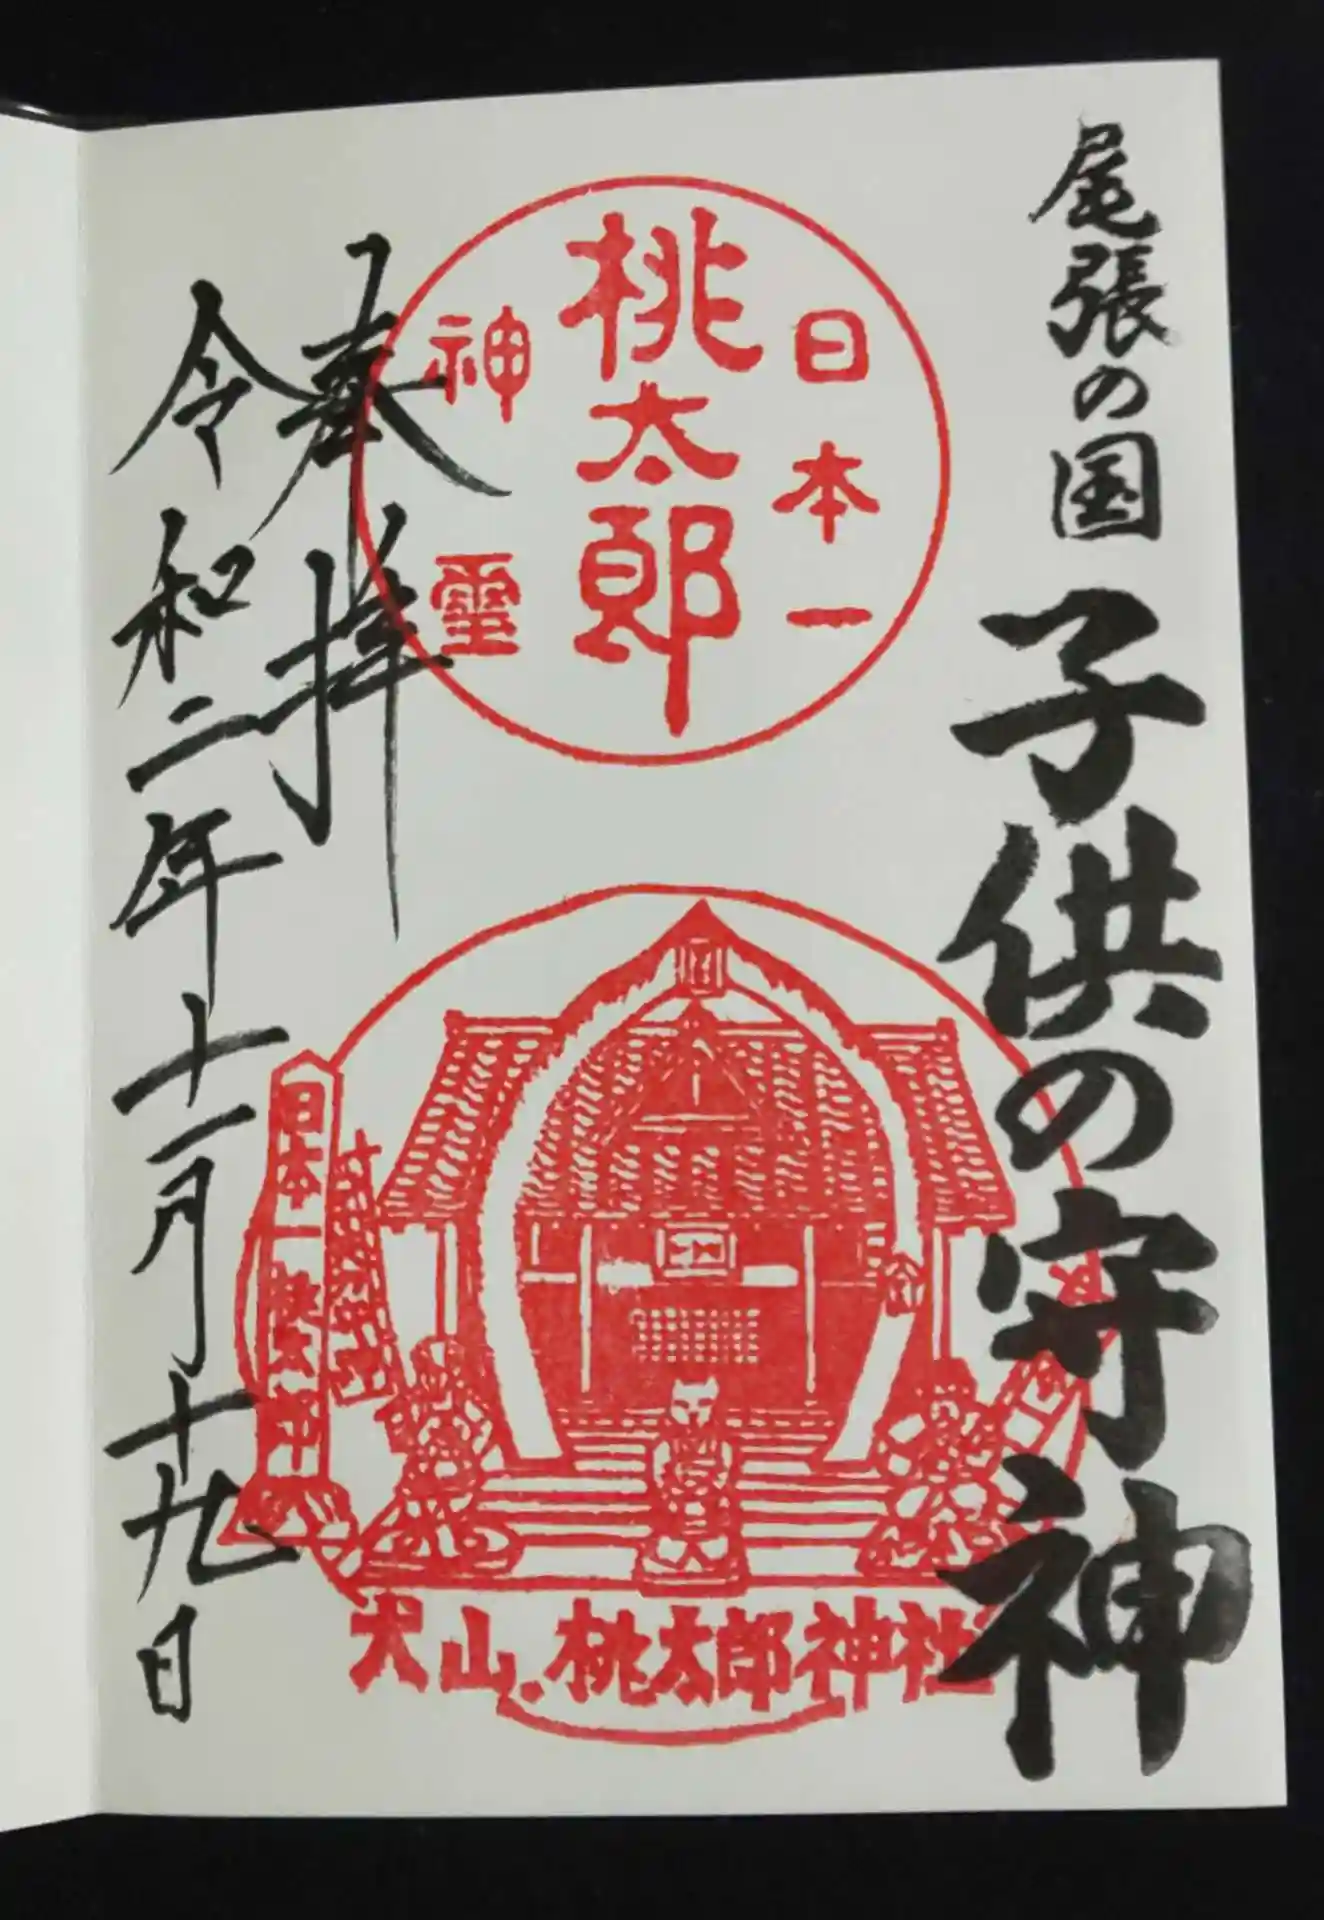 尾張の国 子供の守神
日本一
桃太郎
神霊
奉拝
令和二年十一月十九日
日本一桃太郎
犬山.桃太郎神社